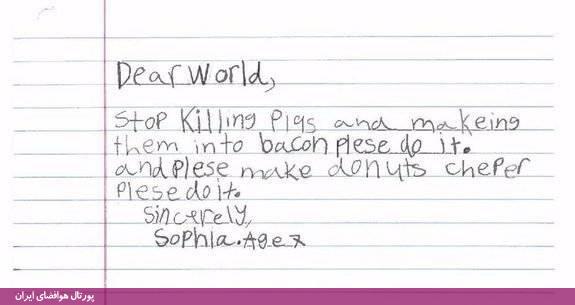 Dear World,
Stop Killing Pigs and makeing
them into bacon plese do it.
and plese make donuts cheper
plese do it.
Sincerely,
Sophia. Age 7
پورتال هوافضای ایران